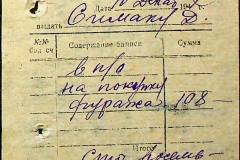 Дата 10 Декаб 194
выдать Стимаку Д.
№№ Содержание записи Сумма
бал сч
в п/о
на покупку
фуража 108 -
Итого
Сто восемь-